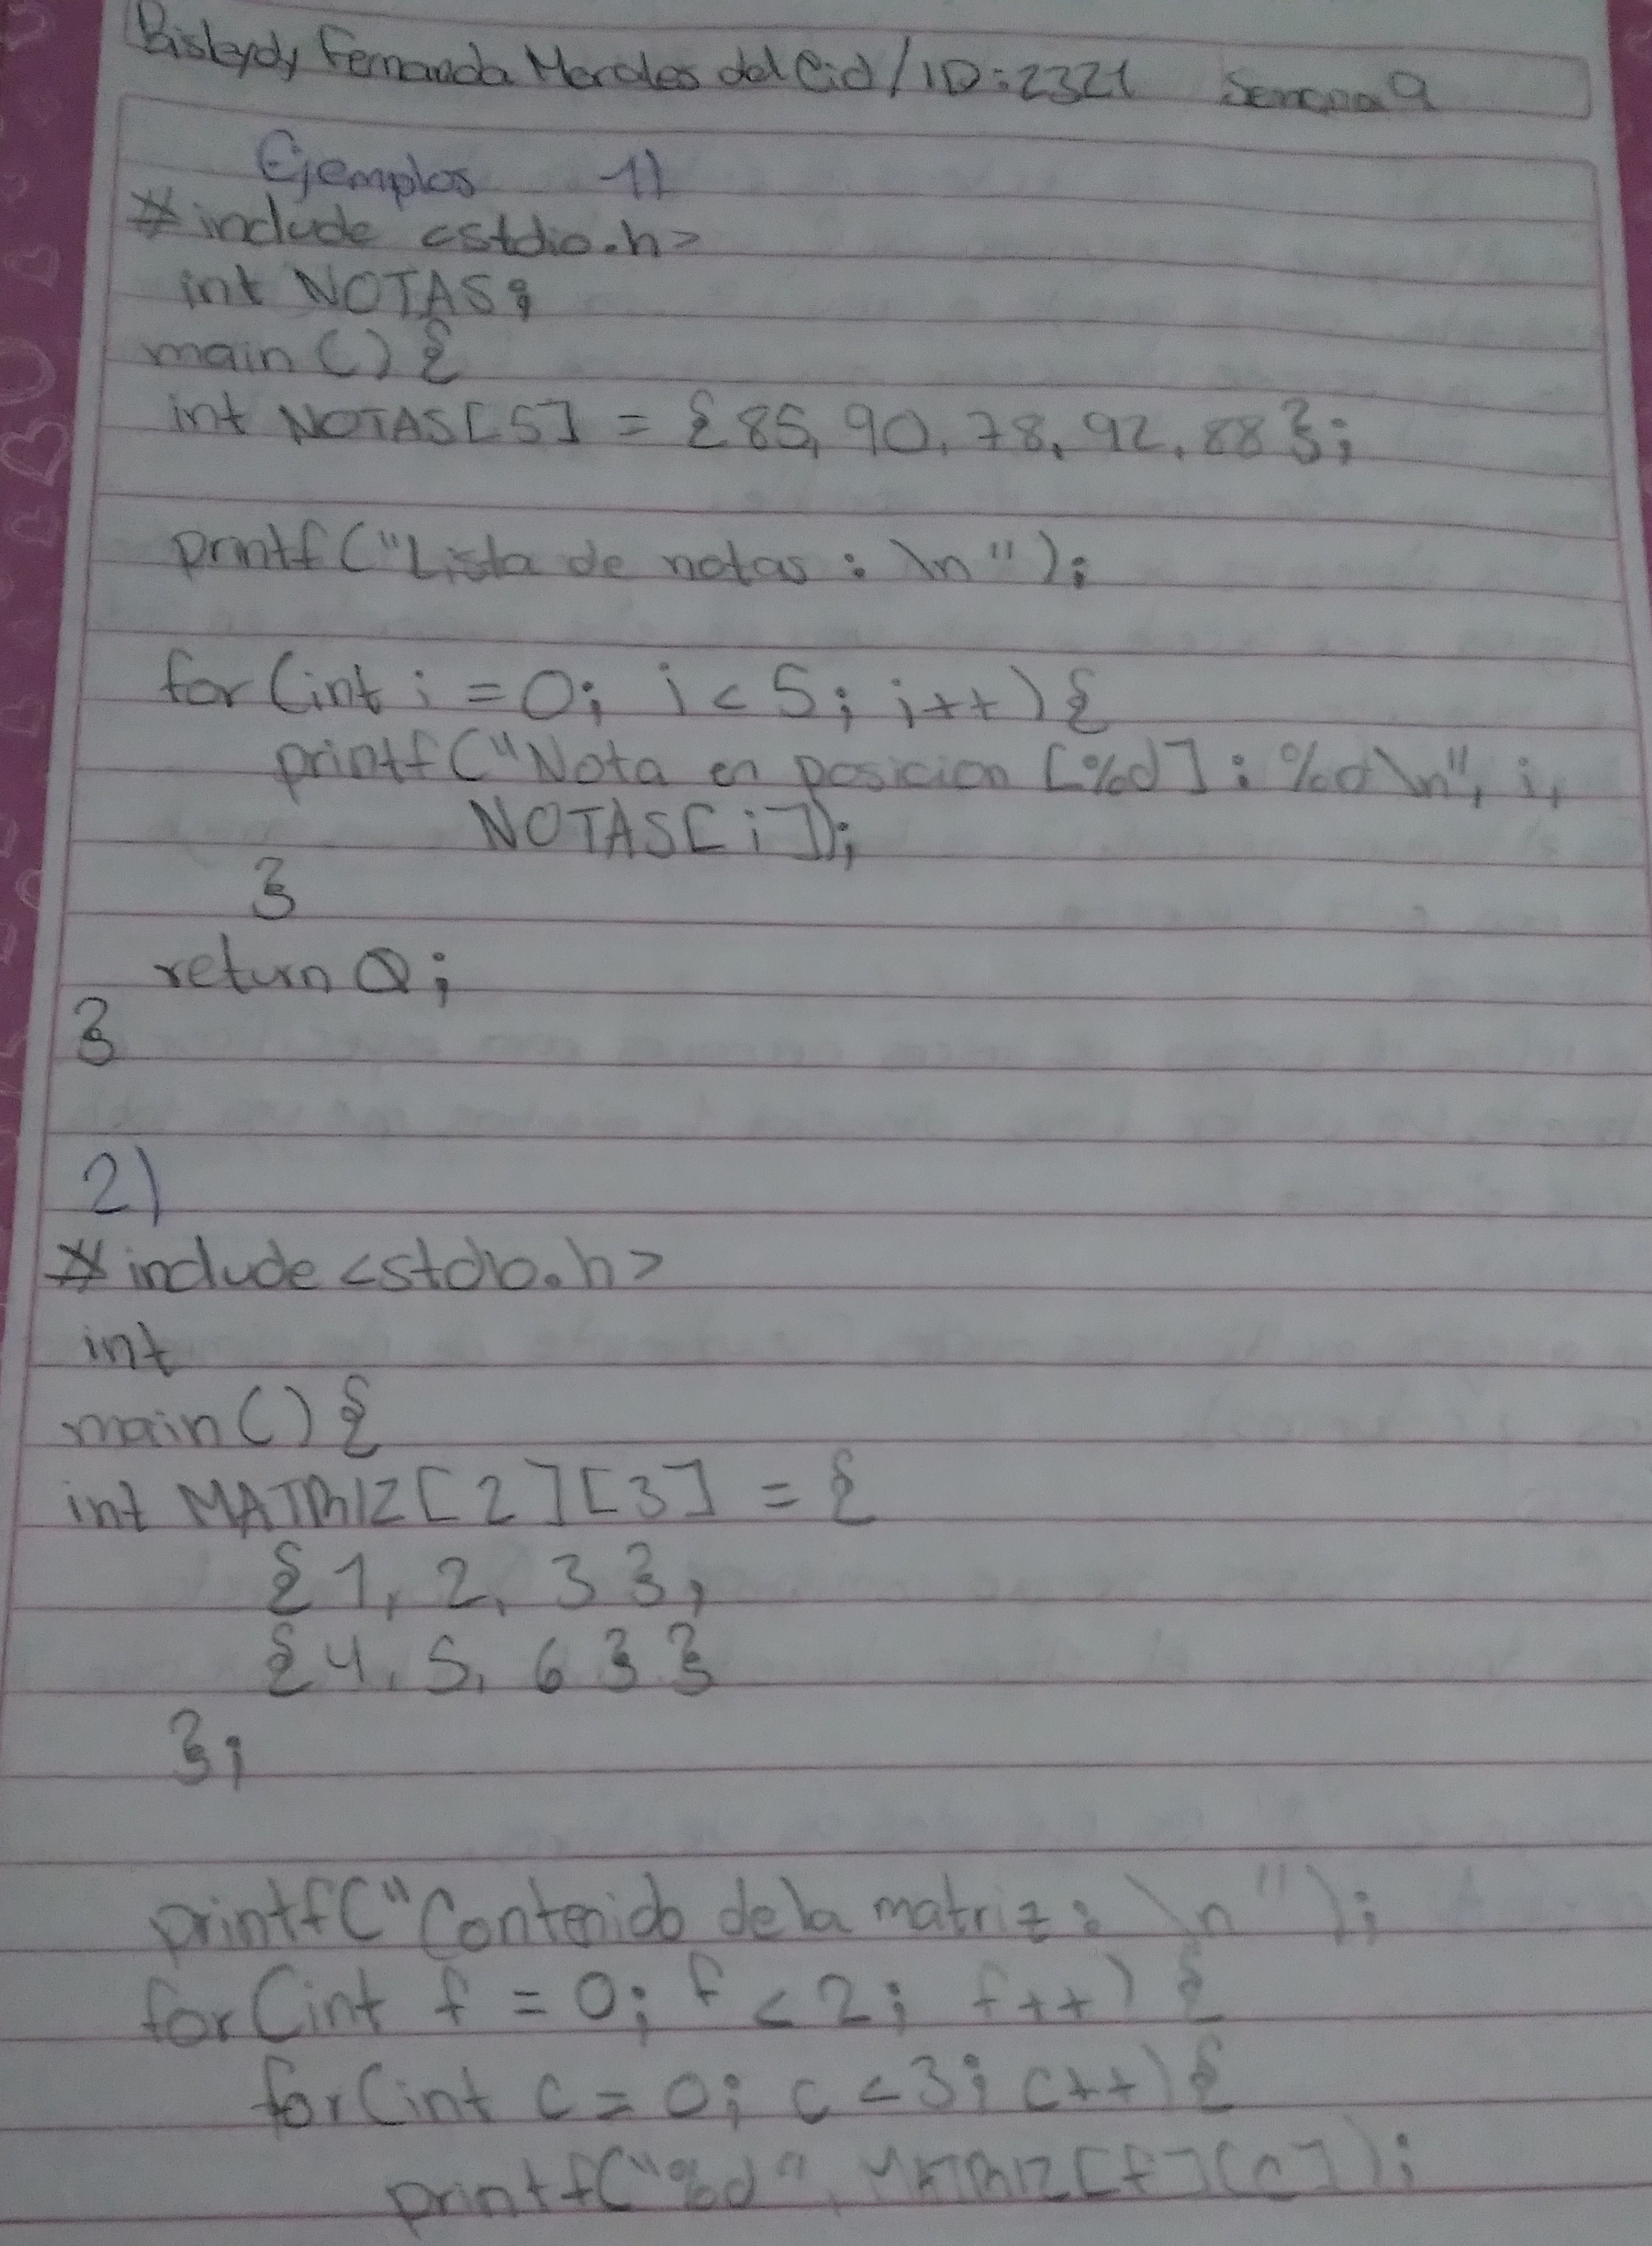 Bisleydy Fernanda Morales del Cid / ID: 2321 Semana 9
Ejemplos 1)
#include <stdio.h>
int NOTAS;
main () {
int NOTAS[5] = {85, 90, 78, 92, 88};
printf("Lista de notas: \n");
for (int i = 0; i < 5; i++) {
printf("Nota en posicion [%d]: %d\n", i,
NOTAS[i]);
}
return 0;
}
2)
#include <stdio.h>
int
main () {
int MATRIZ[2][3] = {
{1, 2, 3},
{4, 5, 6}}
};
printf("Contenido de la matriz: \n");
for (int f = 0; f < 2; f++) {
for (int c = 0; c < 3; c++) {
printf("%d", MATRIZ[f][c]);